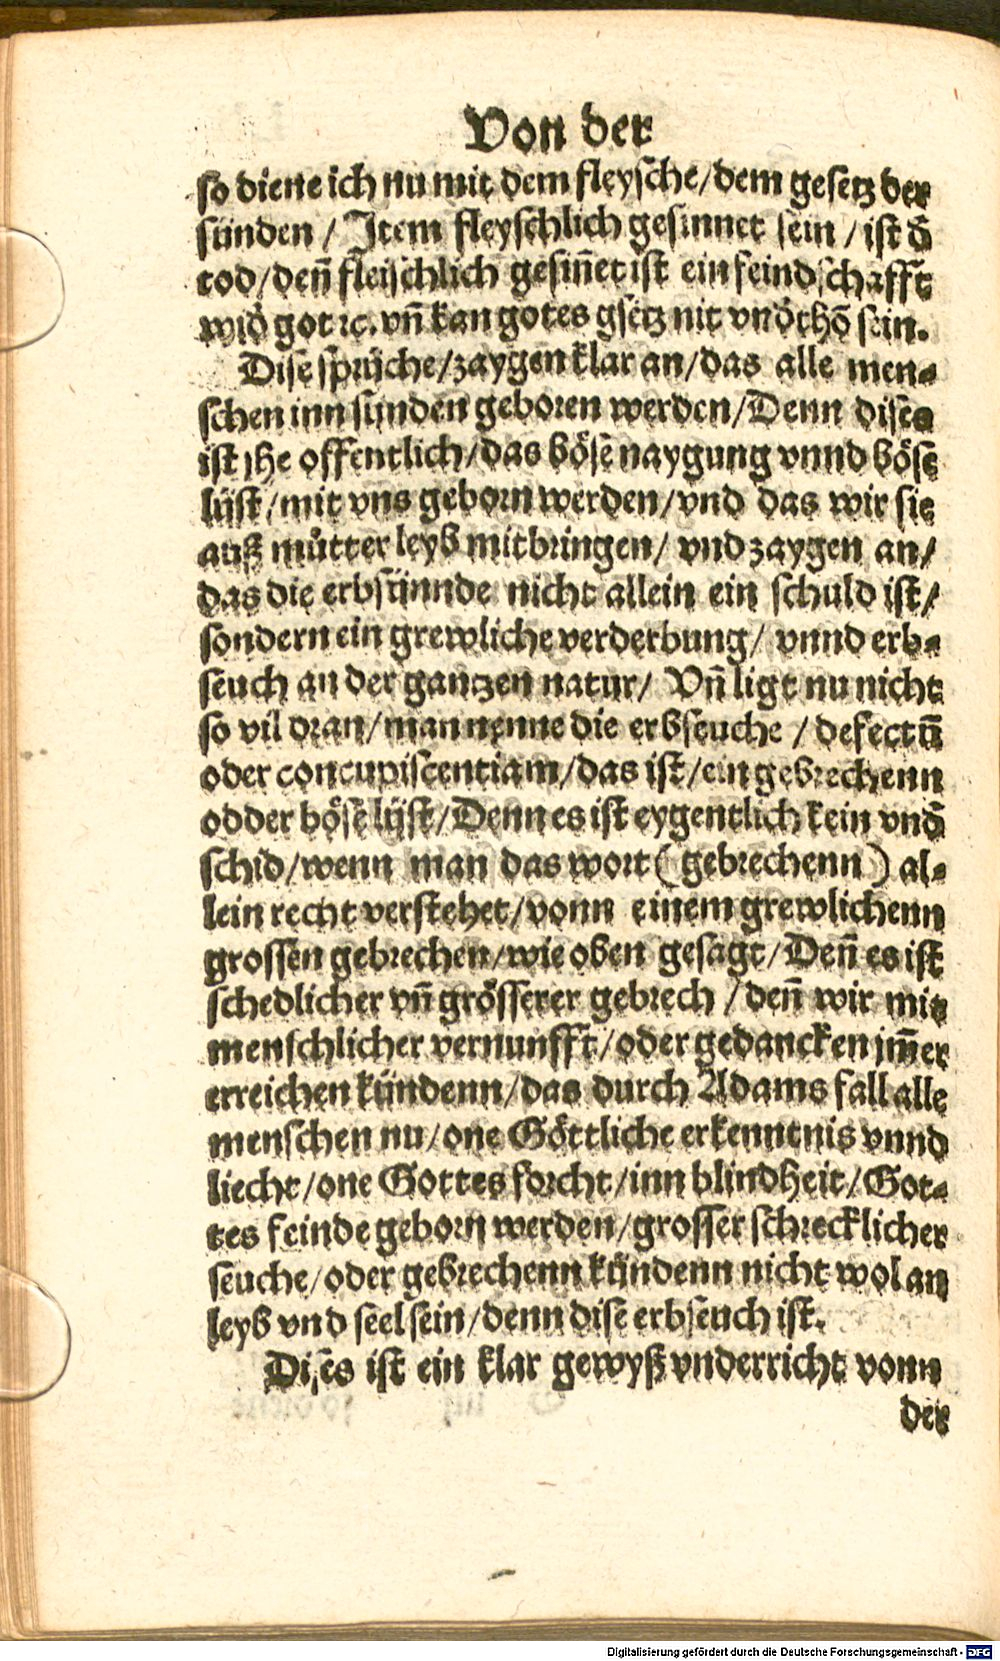 Von der
so diene ich nu mit dem fleysche/dem gesetz der
sünden / Item fleyschlich gesinnet sein / ist d̄
tod/den̄ fleischlich gesin̄et ist ein feindschafft
wid̄ got ꝛc. vn̄ kan gotes gsetz nit vnd̄thō sein.
Dise sprüche/zaygen klar an/das alle men⸗
schen inn sünden geboren werden/Denn dises
ist jhe offentlich/das böse naygung vnnd böse
lüst/mit vns geborn werden/vnd das wir sie
auß můtter leyb mitbringen/ vnd zaygen an/
das die erbsünnde nicht allein ein schuld ist/
sondern ein grewliche verderbung/ vnnd erb⸗
seuch an der gantzen natur/ Vn̄ ligt nu nicht
so vil dran/man nenne die erbseuche / defectū
oder concupiscentiam/das ist/ein gebrechenn
odder böse lüst/Denn es ist eygentlich kein vnd̄
schid/wenn man das wort ( gebrechenn ) al⸗
lein recht verstehet/vonn einem grewlichenn
grossen gebrechen/wie oben gesagt/Den̄ es ist
schedlicher vn̄ grösserer gebrech / den̄ wir mit
menschlicher vernunfft/oder gedancken jm̄er
erreichen kündenn/das durch Adams fall alle
menschen nu/one Göttliche erkenntnis vnnd
liecht/one Gottes forcht/inn blindheit/Got⸗
tes feinde geborn werden/grosser schrecklicher
seuche/oder gebrechenn kündenn nicht wol an
leyb vnd seel sein/denn dise erbseuch ist.
Dises ist ein klar gewyß vnderricht vonn
der
Digitalisierung gefördert durch die Deutsche Forschungsgemeinschaft - DFG